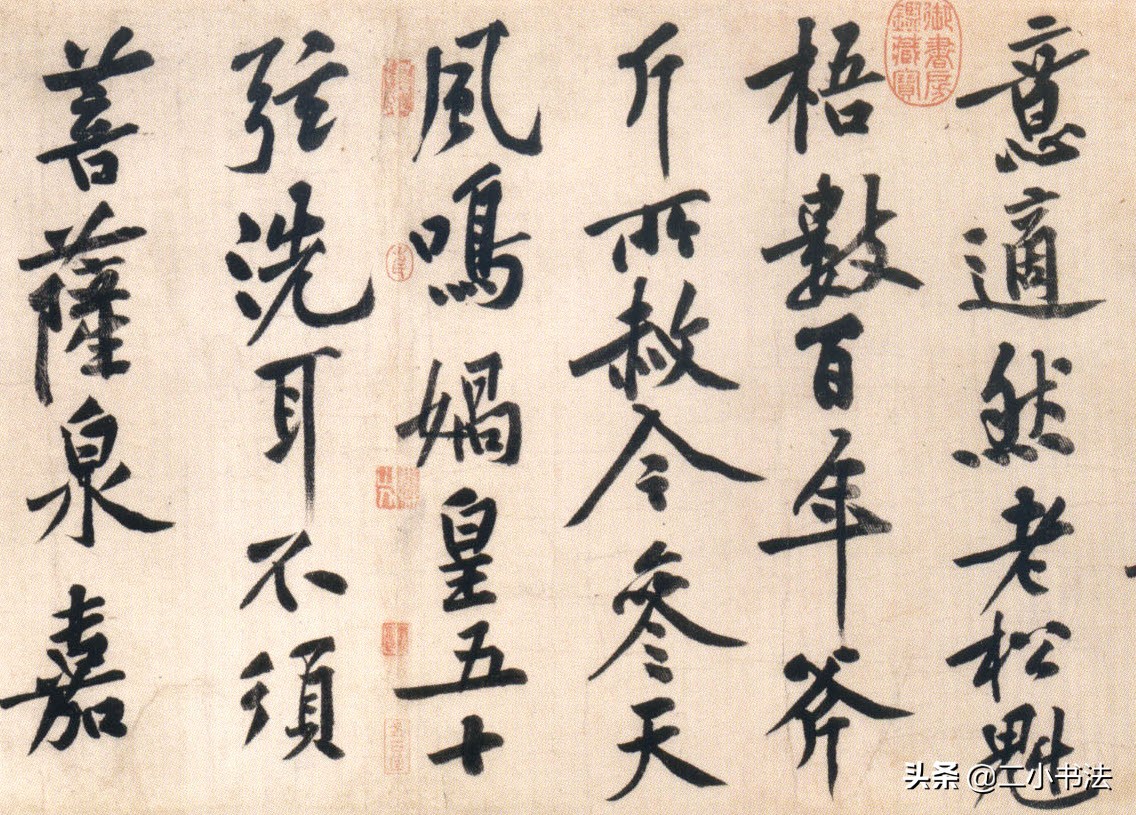 意適然老松魁
梧數百年斧
斤所赦今參天
風鳴媧皇五十
弦洗耳不須
菩薩泉嘉
御書房
鑑藏寶
头条 @二小书法